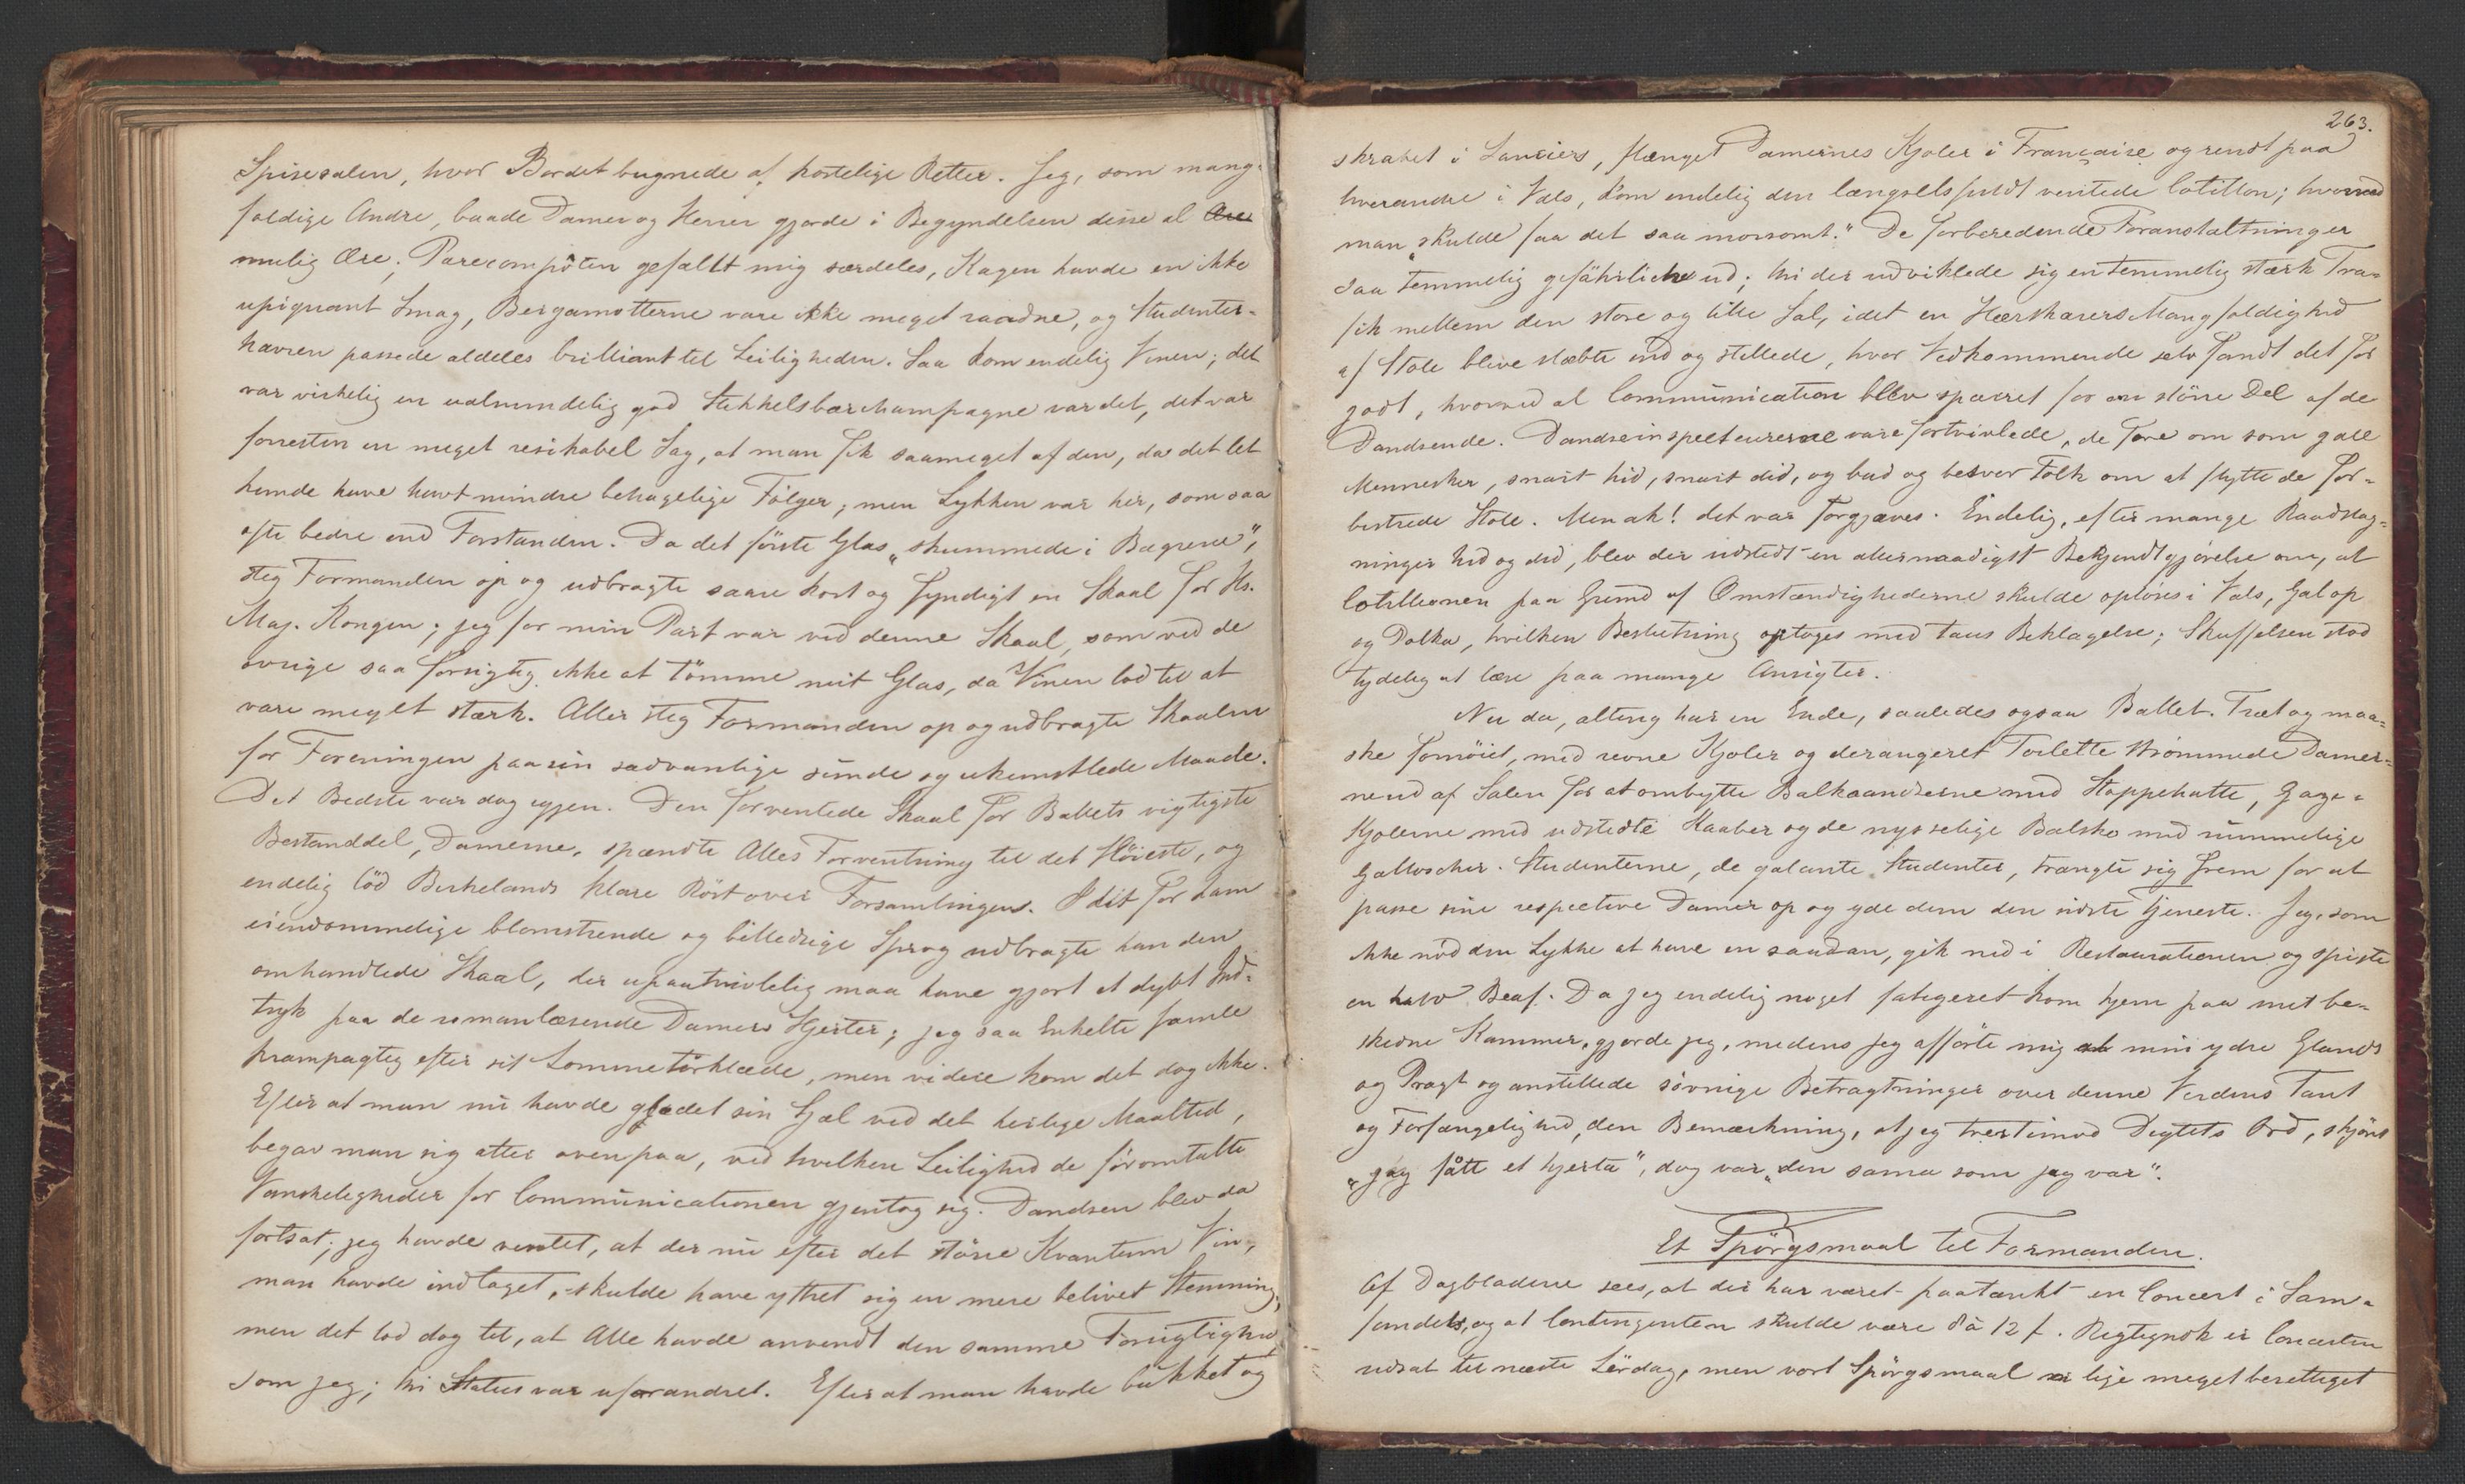 Spisesalen, hvor Bordet bugnede af kostelige Retter. Jeg, som mang-
foldige Andre, baade Damer og Herrer gjorde i Begyndelsen disse al Ære
mulig Ære; Pærecompôten gefallt mig særdeles, Kagen havde en ikke
upiquant Smag, Bergamotterne vare ikke meget raadne, og Studenter-
havren passede aldeles brilliant til Leiligheden. Saa kom endelig Vinen; det
var virkelig en ualmindelig god Stikkelsbærchampagne var det, det var
forresten en meget resikabel Sag, at man fik saameget af den, da det let
kunde have havt mindre behagelige Fölger, men Lykken var her, som saa
ofte bedre end Forstanden. Da det förste Glas „skummede i Bægrene",
steg Formanden op og udbragte saare kort og fyndigt en Skaal for Hs.
Maj. Kongen; jeg for min Part var ved denne Skaal, som ved de
övrige saa forsigtig ikke at tömme mit Glas, da Vinen lod til at
være meget stærk. Atter steg Formanden op og udbragte Skaalen
for Foreningen paa sin sædvanlige sunde og ukunstlede Maade.
Det Bedste var dog igjen. Den forventede Skaal for Ballets vigtigste
Bestanddel, Damerne, spændte Alles Forventning til det Höieste, og
endelig löd Birkelands klare Röst over Forsamlingen. I dit for ham
eiendommelige blomstrende og billedrige Sprog udbragte han den
omhandlede Skaal, der upaatvivlelig maa have gjort et dybt Ind-
tryk paa de romanlæsende Damers Hjerter; jeg saa Enkelte famle
krampagtig efter sit Lommetörklæde, men videre kom det dog ikke.
Efter at man nu havde glædet sin Sjæl ved det herlige Maaltid,
begav man sig atter ovenpaa, ved hvilken Leilighed de föromtalte
Vanskeligheder for Communicationen gjentog sig. Dandsen blev da
fortsat; jeg havde ventet, at der nu efter det större Kvantum Vin,
man havde indtaget, skulde have yttret sig en mere belivet Stemning,
men det lod dog til, at Alle havde anvendt den samme Forsigtighed,
som jeg; thi Status var uforandret. Efter at man havde bukket og
263.
skrabet i Lanciers, flænget Damernes Kjoler i Française og rendt paa
hverandre i Vals, kom endelig den længselsfuldt ventede Cotillon; hvorved
man „skulde faa det saa morsomt." De forberedende Foranstaltninger
saa temmelig gefährliche ud; thi der udviklede sig en temmelig stærk Tra-
fik mellem den store og lille Sal, idet en Hærskarers Mangfoldighed
af Stole blive slæbte ind og stillede, hvor Vedkommende selv fandt det for
godt, hvorved al Communication blev spærret for en större Del af de
Dandsende. Dandseinspecteurerne vare fortvivlede, de fore om som gale
Mennesker, snart hid, snart did, og bad og besvor Folk om at flytte de for-
bistrede Stole. Men ak! det var forgjæves. Endelig, efter mange Raadslag-
ninger hid og did, blev der udstedt en allernaadigst Bekjendtgjörelse om, at
Cotillionen paa Grund af Omstændighederne skulde oplöses i Vals, Galop
og Polka, hvilken Beslutning optoges med taus Beklagelse; Skuffelsen stod
tydelig at læse paa mange Ansigter.
Nu da, alting har en Ende, saaledes ogsaa Ballet. Træt og maa-
ske fornöiet, med revne Kjoler og derangeret Toilette strömmede Damer-
ne ud af Salen for at ombytte Balkaandserne med Stoppehatte, Gaze-
Kjolerne med udstedte Kaaber og de nysselige Balsko med rummelige
Galloscher. Studenterne, de galante Studenter, trængte sig frem for at
passe sine respective Damer op og yde dem den sidste Tjeneste. Jeg, som
ikke nöd den Lykke at have en saadan, gik ned i Restaurationen og spiste
en halv Beaf. Da jeg endelig noget fatigeret kom hjem paa mit be-
skedne Kammer, gjorde jeg, medens jeg afförte mig al min ydre Glands
og Pragt og anstillede sövnige Betragtninger over denne Verdens Tant
og Forfængelighed, den Bemærkning, at jeg trertimod Digtets Ord, skjönt
„jag fått et hjerta", dog var „den sama som jag var".
Et Spörgsmaal til Formanden.
Af Dagbladene sees, at der har været paatænkt en Concert i Sam-
fundet, og at Contingenten skulde være 8 à 12 f. Rigtignok er Concerten
udsat til næste Lördag, men vort Spörgsmaal er lige meget berettiget